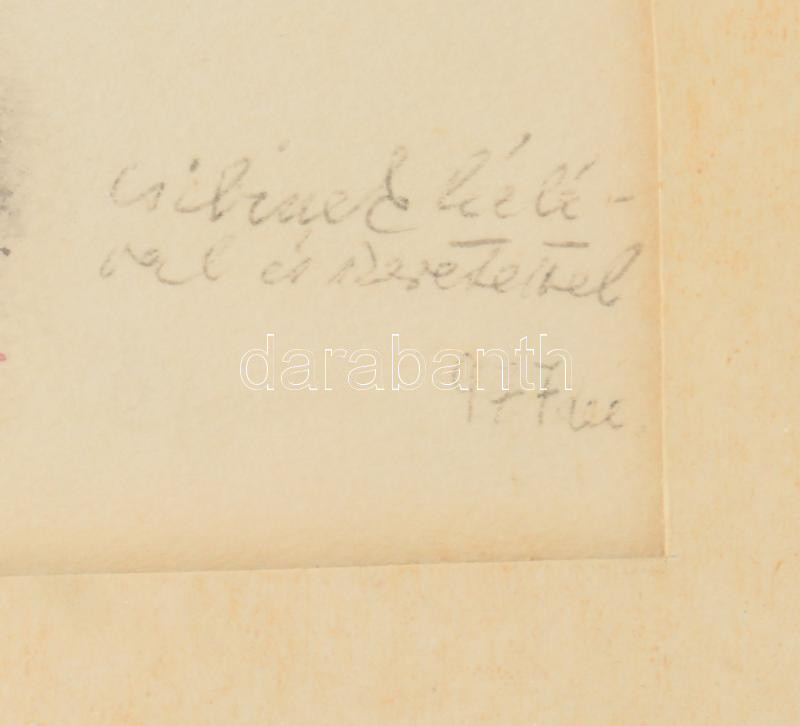 csibinek hálá-
val és szeretettel
darabanth
977